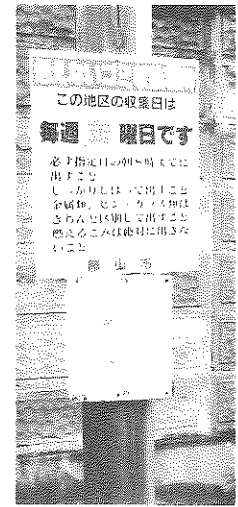 この地区の収集日は
毎週 曜日です
必ず指定日の朝 時までに
出すこと
しっかりしばって出すこと
金属類、ビン・ガラス類は
きちんと区別して出すこと
燃えるごみは絶対に出さな
いこと